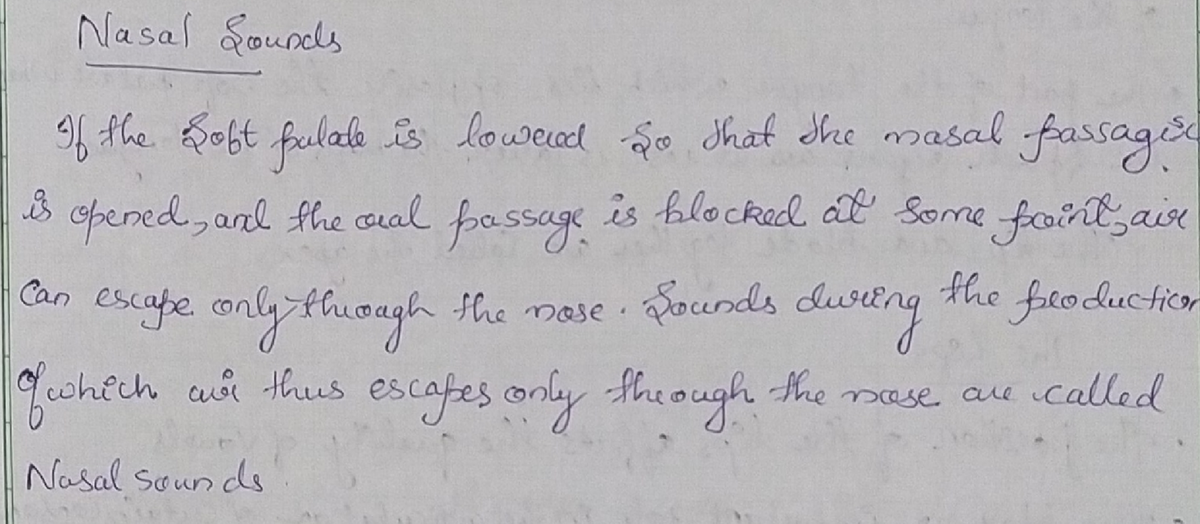 Nasal Sounds
If the Soft palate is lowered So that the nasal passage is
is opened, and the oral passage is blocked at Some point, air
Can escape only through the nose. Sounds during the production
of which air thus escapes only through the nose are called
Nasal sounds